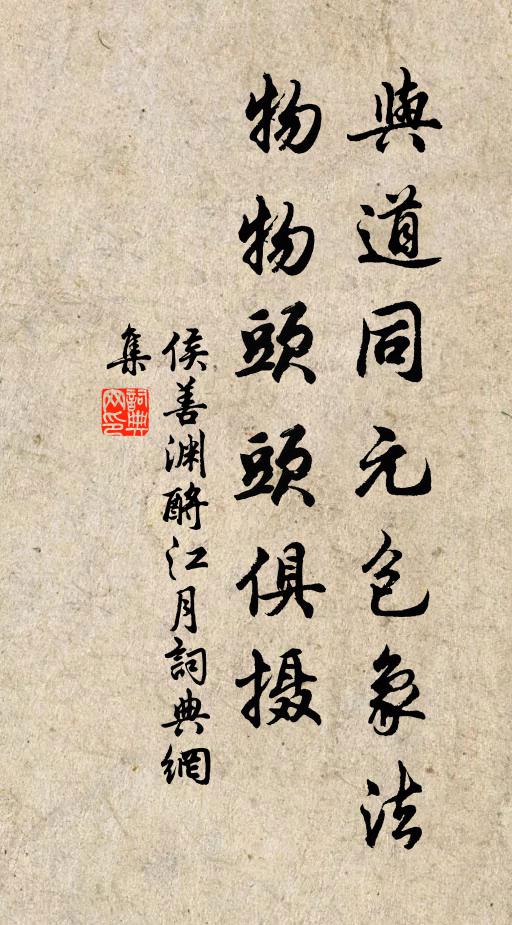 與道同元包象法
物物頭頭俱摄
侯善渊酹江月詞典網
集
詞典
网印